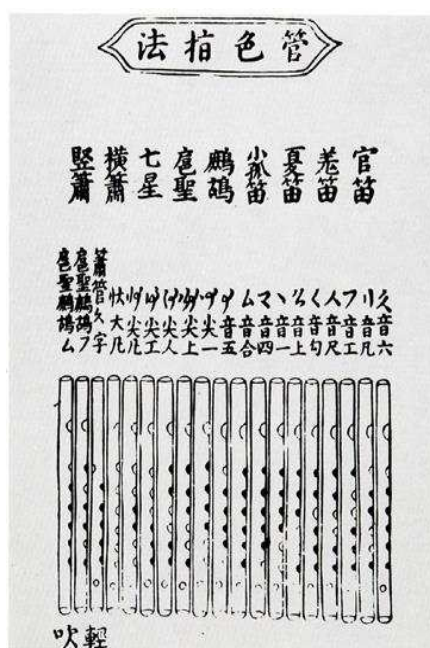 管色指法
官笛
羗笛
夏笛
小孤笛
鷓鴣
扈聖
七星
橫簫
竪簫
久音六
リ音凡
フ音工
人音尺
く音勾
音上
丶音一
マ音四
ム音合
音五
尖一
尖上
尖人
尖工
尖凡
大凡
簫管久字
扈聖鷓鴣フ
扈聖鷓鴣ム
輕
吹